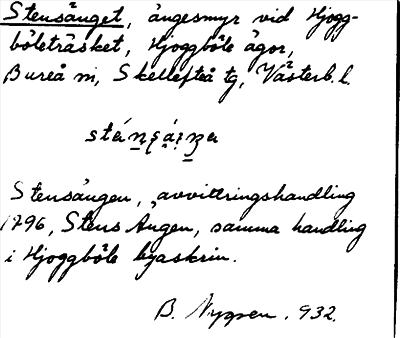 Stensänget, ängesmyr vid Hjogg-
böleträsket, Hjoggböle ägor,
Bureå m, Skellefteå tg, Västerb. l.
Stensängen, avvittringshandling
1796, Stens Ängen, samma handling
i Hjoggböle byaskrin.
B. Nygren. 932.